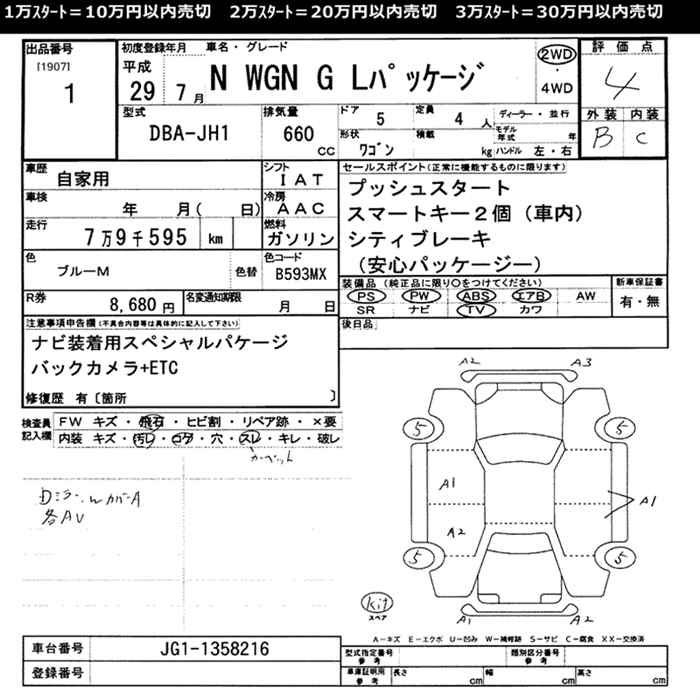 1万ｽﾀｰﾄ＝10万円以内売切　2万ｽﾀｰﾄ＝20万円以内売切　3万ｽﾀｰﾄ＝30万円以内売切
出品番号
[1907]
1
初度登録年月
平成
29 7月
車名・グレード
N WGN G Lパッケージ
2WD
・
4WD
評価点
4
外装 内装
B C
型式
DBA-JH1
排気量
660
cc
ドア 5
定員 4 人
ディーラー・並行
モデル年式 年
形状 ワゴン
積載 kg
ハンドル 左・右
車歴
自家用
シフト
IAT
車検
年 月( 日)
冷房
AAC
走行
7万9千595 km
燃料
ガソリン
色
ブルーM
色替
色コード
B593MX
R券
8,680 円
名変通知期限
月 日
セールスポイント(正常に機能するものに限ります)
プッシュスタート
スマートキー2個（車内）
シティブレーキ
（安心パッケージー）
装備品 (純正品に限り○をつけてください)
PS PW ABS エアB AW
SR ナビ TV カワ
新車保証書
有・無
後日品
注意事項申告欄(不具合内容等は具体的に記入して下さい)
ナビ装着用スペシャルパケージ
バックカメラ+ETC
修復歴 有〔箇所 〕
検査員
記入欄
FW キズ・飛石・ヒビ割・リペア跡・×要
内装 キズ・汚レ・コゲ・穴・スレ・キレ・破レ
カーペット
Dミラーカバー A
各AU
A2 A3
5 5
A1
A1
A2
5 5
Kit
スペア
A1 A2
A−キズ E−エクボ U−凹み W−補修跡 S−サビ C−腐食 XX−交換済
車台番号
JG1-1358216
登録番号
型式指定番号
参考
類別区分番号
参考
車庫証明用
参考
長さ cm
幅 cm
高さ cm